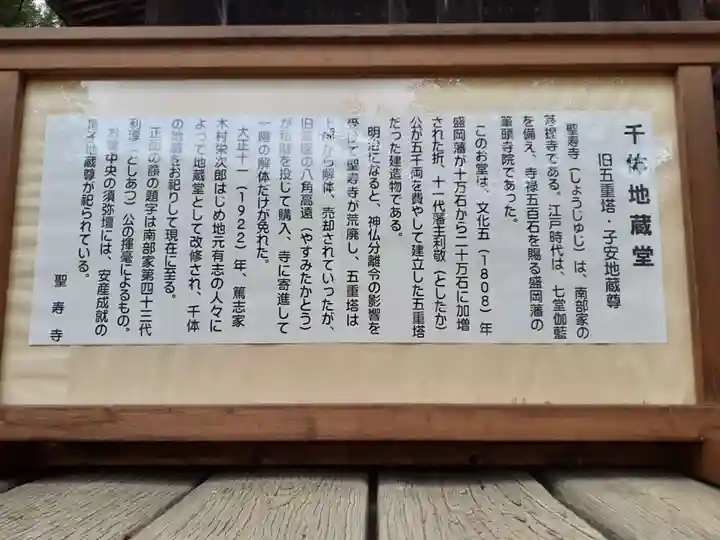 千体地蔵堂
旧五重塔・子安地蔵尊
聖寿寺（しょうじゅじ）は、南部家の
菩提寺である。江戸時代は、七堂伽藍
を備え、寺禄五百石を賜る盛岡藩の
筆頭寺院であった。
このお堂は、文化五（1808）年
盛岡藩が十万石から二十万石に加増
された折、十一代藩主利敬（としたか）
公が五千両を費やして建立した五重塔
だった建造物である。
明治になると、神仏分離令の影響を
受けて聖寿寺が荒廃し、五重塔は
上から解体、売却されていったが、
旧の八角高遠（やすみたかとう）
が私財を投じて購入、寺に寄進して
一階の解体だけが免れた。
大正十一（1922）年、篤志家
木村栄次郎はじめ地元有志の人々に
よって地蔵堂として改修され、千体
の地蔵をお祀りして現在に至る。
正面の額の題字は南部家第四十三代
利淳（としあつ）公の揮毫によるもの。
お堂中央の須弥壇には、安産成就の
子安地蔵尊が祀られている。
聖寿寺